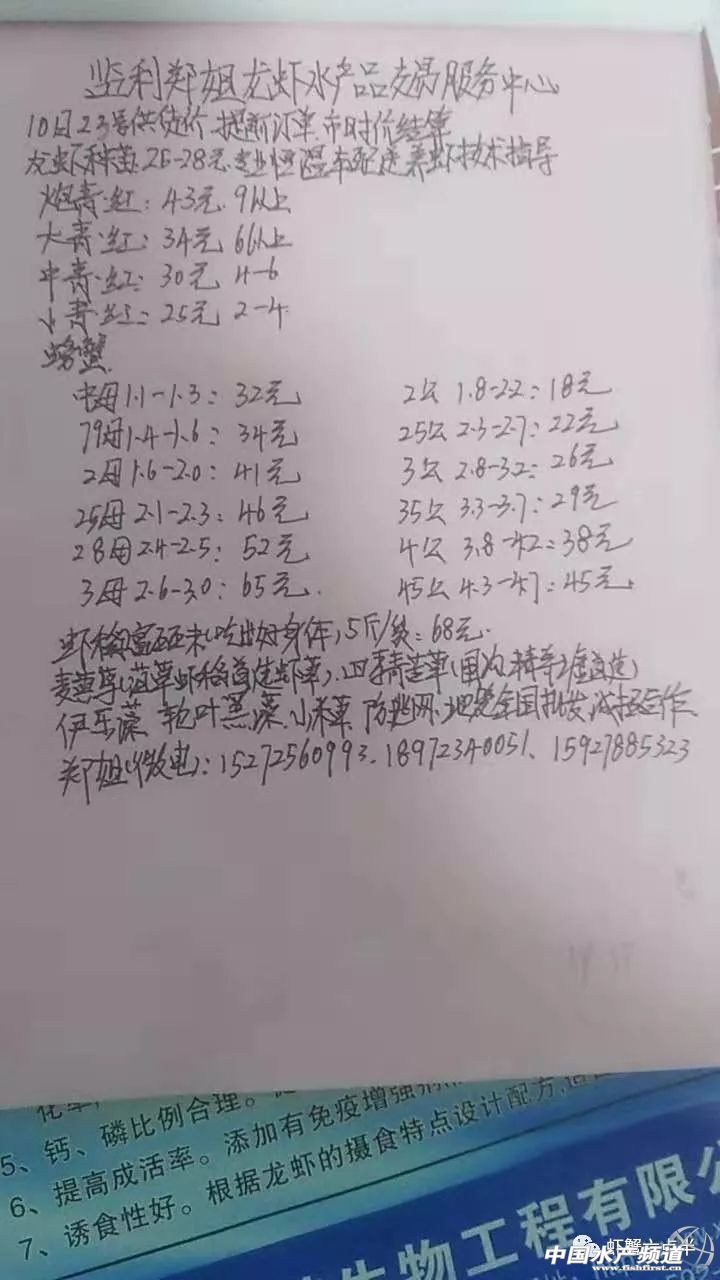 监利郑姐龙虾水产品交易服务中心
10月23号供货价 提前订单 市时价结算
龙虾种苗 26-28元 专业恒温车配送 养虾技术指导
炮青.红: 43元 9以上
大青.红: 34元 66以上
中青.红: 30元 4-6
小青.红: 25元 2-4
螃蟹
中母1.1-1.3: 32元 2公 1.8-2.2: 18元
79母1.4-1.6: 34元 25公 2.3-2.7: 22元
2母1.6-2.0: 41元 3公 2.8-3.2: 26元
25母2.1-2.3: 46元 35公 3.3-3.7: 29元
28母2.4-2.5: 52元 4公 3.8-4.2: 38元
3母2.6-3.0: 65元 45公 4.3-4.7: 45元
虾稻富硒米(吃出好身体), 5斤/袋: 68元
(菹草虾稻首选虾草), 四季青苦草
伊乐藻 轮叶黑藻 小米草 防逃网 地笼全国批发 诚招合作
郑姐(微电): 15272560993. 18972340051、15927885323
5、钙、磷比例合理。
6、提高成活率。添加有免疫增强
7、诱食性好。根据龙虾的摄食特点设计配方,
生物工程有限公
虾蟹六点半
中国水产频道
www.fishfirst.cn